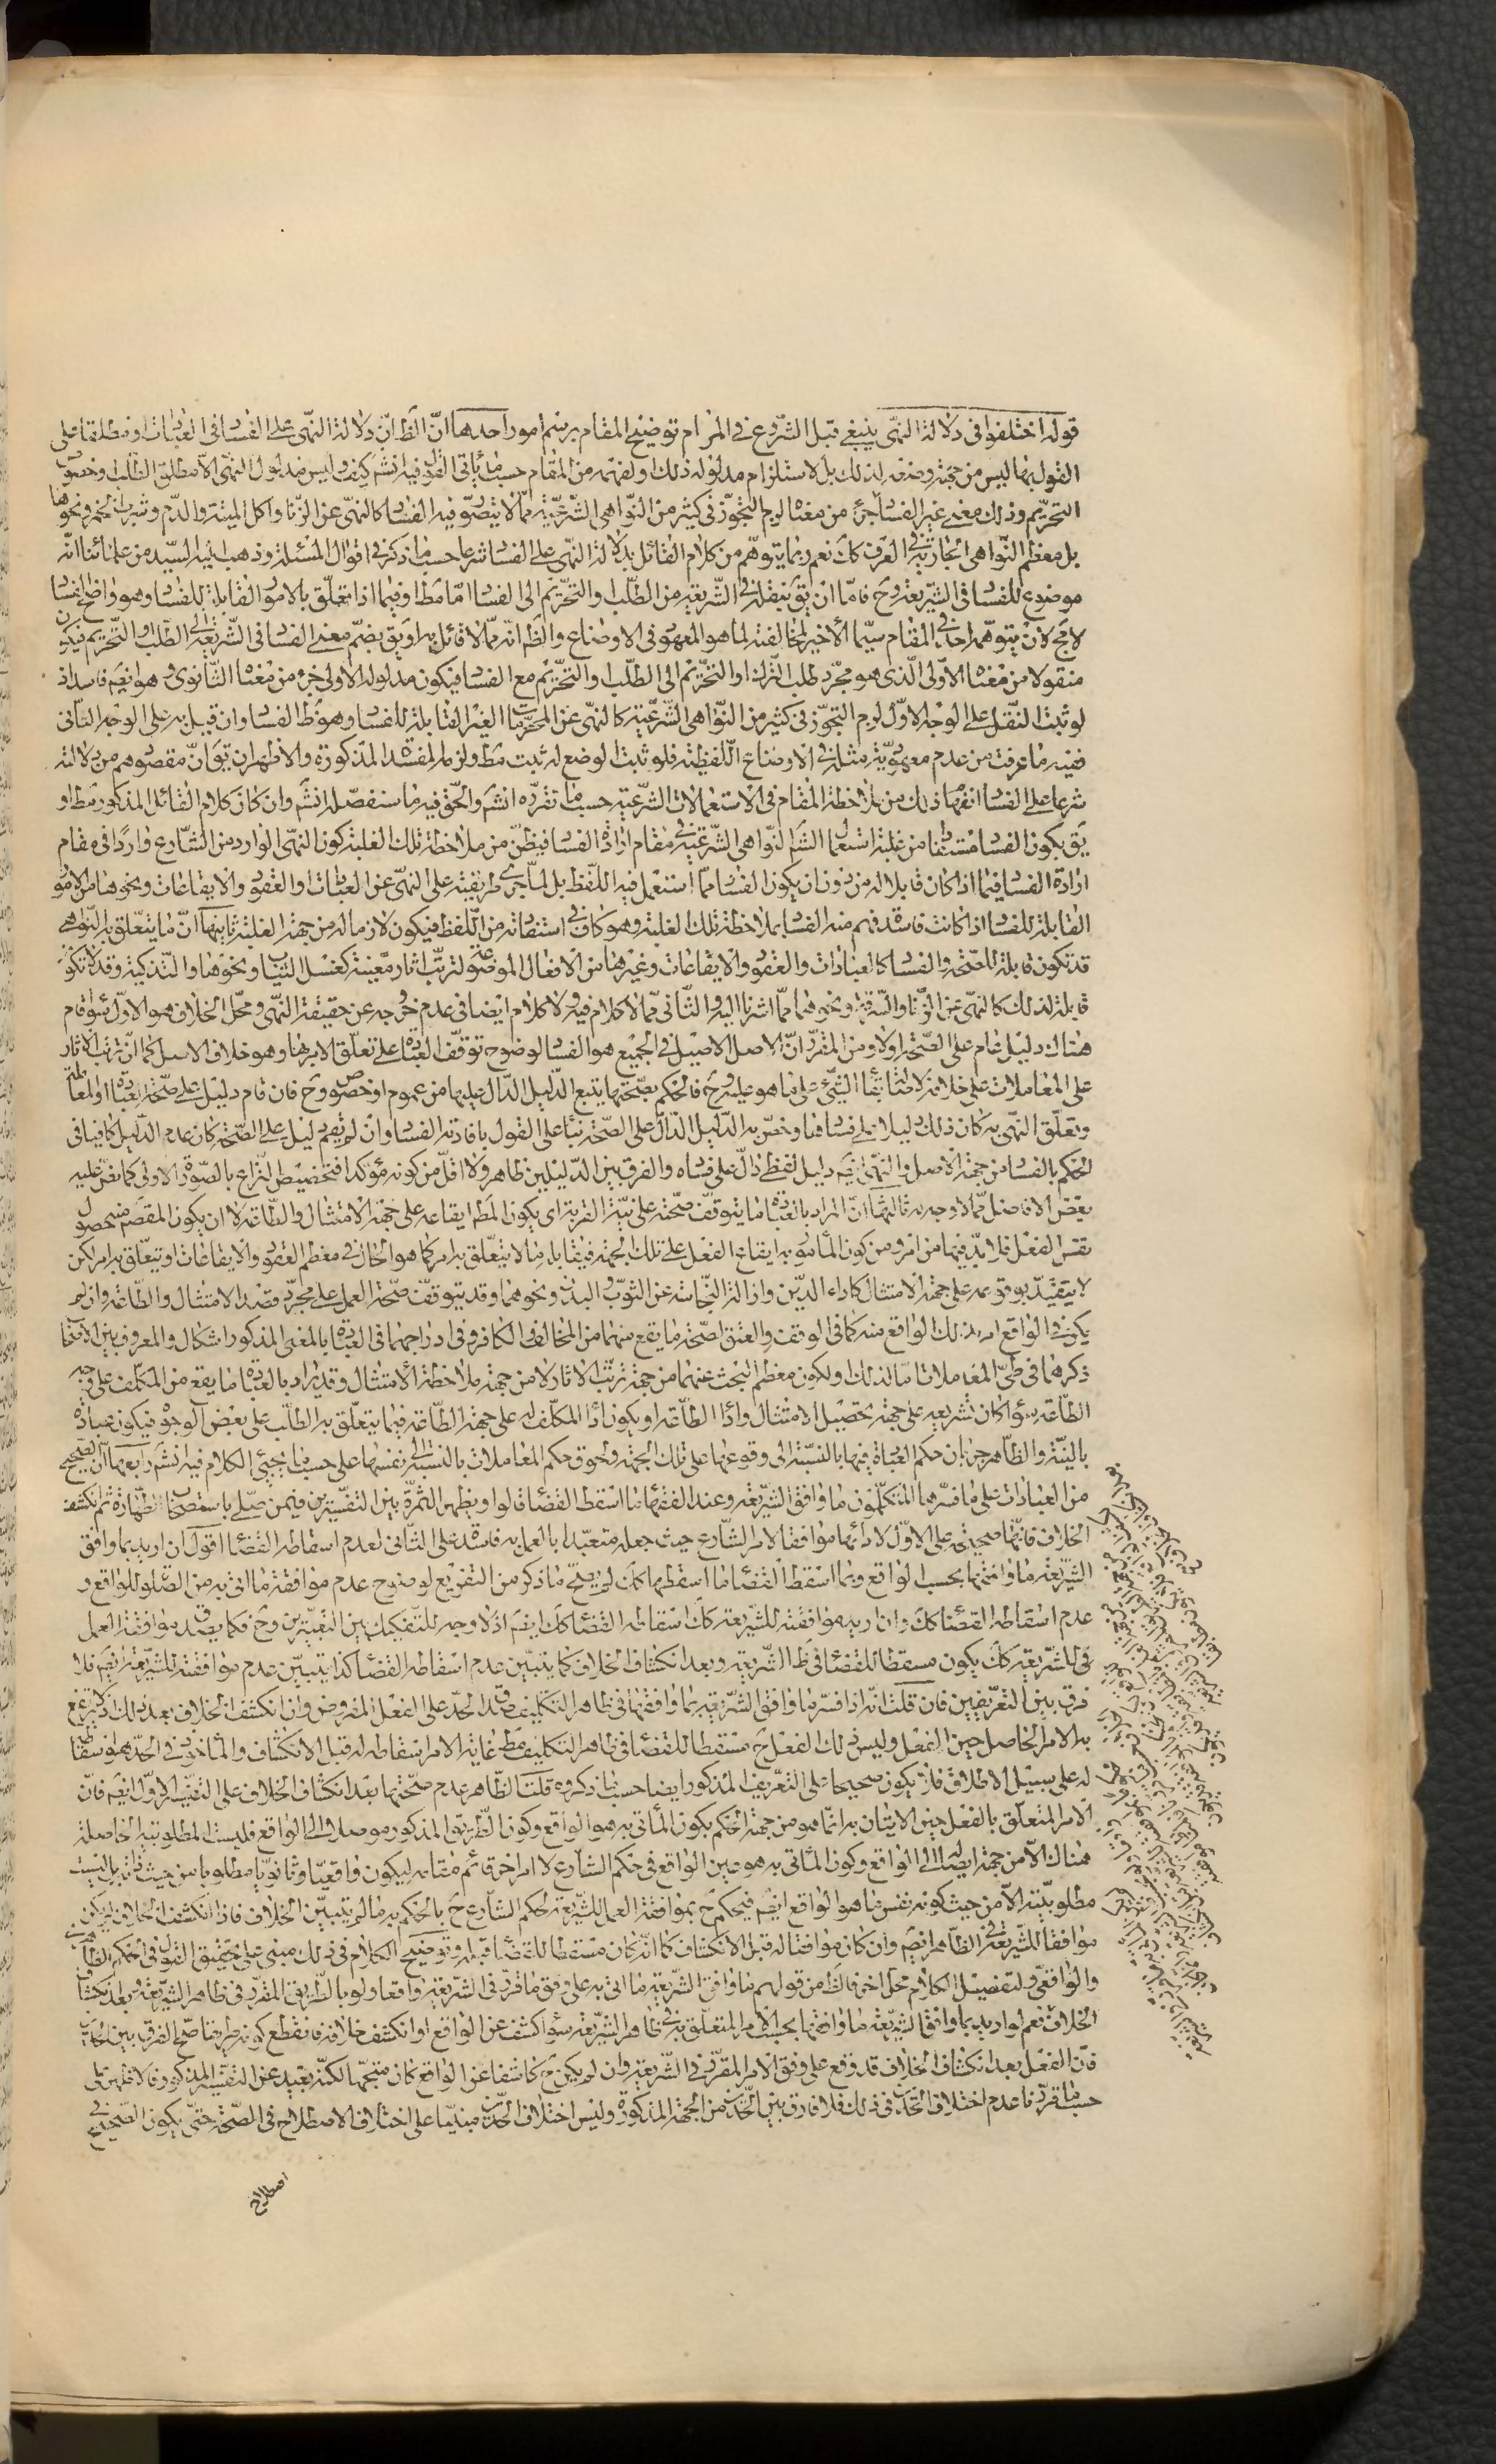 قوله اختلفوا فى دلالة النهى ينبغى قبل الشروع فى المرام توضيح المقام برسم امور احدها انّ الظ انّ دلالة النهى على الفساد فى العبادات او مطلقا على
القول بها ليس من جهة وضعه لذلك بل لاستلزام مدلوله ذلك او لفهمه من المقام حسبما يأتى القول فيه انش كيف وليس مدلول النهى الا مطلق الطلب او خصوص
التحريم وذلك معنى غير الفساد من معناه لزم التجوّز فى كثير من النواهى الشرعيّة ممّا لا يتصوّر فيه الفساد كالنهى عن الزنا واكل الميتة والدم وشرب الخمر ونحوها
بل معظم النواهى الجارية فى العرف كك نعم ربما يتوهّم من كلام القائل بدلالة النهى على الفساد شرعا حسبما ذكر فى اقوال المسئلة وذهب اليه السيّد من علمائنا انّه
موضوع للفساد فى الشريعة وح فامّا ان يق بنقله فى الشريعة من الطلب والتحريم الى الفساد امّا مط او فيما اذا تعلّق بالامور القابلة للفساد وهو واضح الفساد
لا مج لان يتوهّمه احد فى المقام سيّما الأخير لمخالفته لما هو المعهود فى الاوضاع والظ انّه ممّا لا قائل به او يق بضمّ معنى الفساد فى الشريعة الى الطلب او التحريم فيكون
منقولا من معناه الاوّلى الّذى هو مجرّد طلب الترك او التحريم الى الطلب او التحريم مع الفساد فيكون مدلوله الاولى جزء من معناه الثانوى وهو ايضم فاسد اذ
لو ثبت النقل على الوجه الاوّل لزم التجوّز فى كثير من النواهى الشرعيّة كالنهى عن المحرّمات الغير القابلة للفساد وهو ظ الفساد وان قيل به على الوجه الثانى
ففيه ما عرفت من عدم معهوديّة مثله فى الاوضاع اللفظيّة فلو ثبت الوضع له ثبت مط ولزم المفسدة المذكورة والاظهر ان يق انّ مقصودهم من دلالته
شرعا على الفساد انفهام ذلك من ملاحظة المقام فى الاستعمالات الشرعيّة حسبما نقرّره انش والحق فيه ما سنفصّله انش وان كان كلام القائل المذكور مط او
يق بكون الفساد مستفادا من غلبة استعمال النواهى الشرعيّة فى مقام ارادة الفساد فيظنّ من ملاحظة تلك الغلبة كون النهى الوارد من الشارع واردا فى مقام
ارادة الفساد فيما اذا كان قابلا له من دون ان يكون الفساد ممّا استعمل فيه اللفظ بل لمّا جرى طريقته على النهى عن العبادات او العقود والايقاعات ونحوها من الامور
القابلة للفساد اذا كانت فاسدة فهم منه الفساد بملاحظة تلك الغلبة وهو كاف فى استفادته من اللفظ فيكون لازما له من جهة الغلبة ثانيها انّ ما يتعلّق به النواهى
قد تكون قابلة للصحّة والفساد كالعبادات والعقود والايقاعات وغيرها من الافعال الموضوعة لترتّب اثار معيّنة كغسل الثياب ونحوها والتذكية وقد لا تكون
قابلة لذلك كالنهى عن الزنا والسرقة ونحوهما ممّا اشرنا اليه والثانى ممّا لا كلام فيه ولا كلام ايضا فى عدم خروجه عن حقيقة النهى ومحلّ الخلاف هو الاوّل سواء قام
هناك دليل عام على الصحّة او لا ومن المقرّر انّ الاصل الاصيل فى الجميع هو الفساد لوضوح توقّف العبادة على تعلّق الامر بها وهو خلاف الاصل كما انّ ترتّب الاثار
على المعاملات على خلافه لاصالة بقاء الشئ على ما هو عليه وح فالحكم بصحّتها يتبع الدليل الدالّ عليها من عموم او خصوص وح فان قام دليل على صحّة العبادة او المعاملة
وتعلّق النهى به كان ذلك دليلا على فسادها وخصّ به الدليل الدالّ على الصحّة بناء على القول بافادته الفساد وان لم يقم دليل على الصحّة كان عدم الدليل كافيا فى
الحكم بالفساد من جهة الاصل والنهى ايضم دليل لفظى دالّ على فساده والفرق بين الدليلين ظاهر ولا اقلّ من كونه مؤكّدا فتخصيص النزاع بالصورة الاولى كما نصّ عليه
بعض الافاضل ممّا لا وجه له ثالثها انّ المراد بالعبادة ما يتوقّف صحّته على نيّة القربة اى يكون المط ايقاعه على جهة الامتثال والطاعة لا ان يكون المقصود منه حصول
نفس الفعل فلا بدّ فيها من امر ومن كون المأمور به ايقاع الفعل على تلك الجهة فيقابله ما لا يتعلّق به امر كما هو الحال فى معظم العقود والايقاعات او تعلّق به امر لكن
لا يتقيّد بوقوعه على جهة الامتثال كاداء الدين وازالة النجاسة عن الثوب والبدن ونحوهما وقد يتوقّف صحّة العمل على مجرّد قصد الامتثال والطاعة وان لم
يكن فى الواقع امر بذلك الواقع منه كما فى الوقف والعتق لصحّة ما يقع منهما من المخالف والكافر وفى ادراجهما فى العبادة بالمعنى المذكور اشكال والمعروف بين الاصحاب
ذكرهما فى طىّ المعاملات امّا لذلك او لكون معظم البحث عنهما من جهة ترتّب الاثار لا من جهة ملاحظة الامتثال وقد يراد بالعبادة ما يقع من المكلّف على وجه
الطاعة سواء كان تشريعه على جهة تحصيل الامتثال واداء الطاعة او يكون اداء المكلّف له على جهة الطاعة فيما يتعلّق به الطلب على بعض الوجوه فيكون عبادة
بالنيّة والظاهر جريان حكم العبادة فيها بالنسبة الى وقوعها على تلك الجهة ولحوق حكم المعاملات بالنسبة الى نفسها على حسب ما يجئ الكلام فيه انش رابعها انّ الصحيح
من العبادات على ما فسّرها المتكلّمون ما وافق الشريعة وعند الفقهاء ما اسقط القضاء قالوا ويظهر الثمرة بين التفسيرين فيمن صلّى باستصحاب الطهارة ثم انكشف
الخلاف فانّها صحيحة على الاوّل لادائها موافقا لامر الشارع حيث جعله متعبّدا بالعمل به فاسدة على الثانى لعدم اسقاطه القضاء اقول ان اريد بما وافق
الشريعة ما وافقها بحسب الواقع وبما اسقط القضاء ما اسقطها كك لم يصحّ ما ذكر من التفريع لوضوح عدم موافقة ما اتى به من الصلوة للواقع و
عدم اسقاطه القضاء كك وان اريد موافقته للشريعة كك اسقاطه القضاء كك ايضم اذ لا وجه للتفكيك بين التفسيرين وح فكما يصدق موافقة العمل
فى للشريعة كك يكون مسقطا للقضاء فى ظ الشريعة وبعد انكشاف الخلاف كما يتبيّن عدم اسقاطه القضاء كذا يتبيّن عدم موافقته للشريعة ايضم فلا
فرق بين التعريفين فان قلت انّه اذا فسّر ما وافق الشريعة بما وافقها فى ظاهر التكليف صدق الحدّ على الفعل المفروض وان انكشف الخلاف بعد ذلك
به الامر الحاصل حين الفعل وليس ذلك الفعل ح مسقطا للقضاء فى ظاهر التكليف مط غاية الامر اسقاطه له قبل الانكشاف والمأخوذ فى الحدّ هو اسقاطه
له على سبيل الاطلاق فلا يكون صحيحا على التعريف المذكور ايضا حسبما ذكروه قلت الظاهر عدم صحّتها بعد انكشاف الخلاف على التفسير الاوّل ايضم فانّ
الامر المتعلّق بالفعل حين الاتيان به انّما هو من جهة الحكم بكون المأتى به هو الواقع وكون الطريق المذكور موصلا الى الواقع فليست المطلوبية الحاصلة
هناك الا من جهة ايصاله الى الواقع وكون المأتى به هو عين الواقع فى حكم الشارع لا امرا اخر قائم مقامه ليكون واقعيّا وثانويّا مطلوبا من حيث ذاته بل ليست
مطلوبيّته الا من حيث كونه نفس ما هو الواقع ايضم فيحكم ح بموافقة العمل للشريعة لحكم الشارع ح بالحكم به ما لم يتبيّن الخلاف فاذا انكشف الخلاف لم يكن
موافقا للشريعة فى الظاهر ايضم وان كان موافقا له قبل الانكشاف كما انّه كان مسقطا للقضاء قبله وتوضيح الكلام فى ذلك مبنى على تحقيق القول فى الحكم الظاهرى
والواقعى ولتفصيل الكلام محلّ اخر من قولهم ما وافق الشريعة ما اتى به على وفق ما قرّر فى الشريعة واقعا ولو بالطريق المقرّر فى ظاهر الشريعة بعد انكشاف
الخلاف نعم لو اريد بما وافق الشريعة ما وافقها بحسب الامر المتعلّق به فى ظاهر الشريعة سواء كشف عن الواقع او انكشف خلافه فانقطع كونه طريقا صحّ الفرق بين الحدّين
فانّ الفعل بعد انكشاف الخلاف قد وقع على وفق الامر المقرّر فى الشريعة وان لم يكن ح كاشفا عن الواقع كان متّجها لكنّه بعيد عن التفسير المذكور فالاظهر على
حسب ما قرّرنا عدم اختلاف الحدّين فى ذلك فلا فارق بين الحدّين من الجهة المذكورة وليس اختلاف الحدّين مبنيّا على اختلاف الاصطلاح فى الصحّة حتّى يكون الصحيح فى
اصطلاح